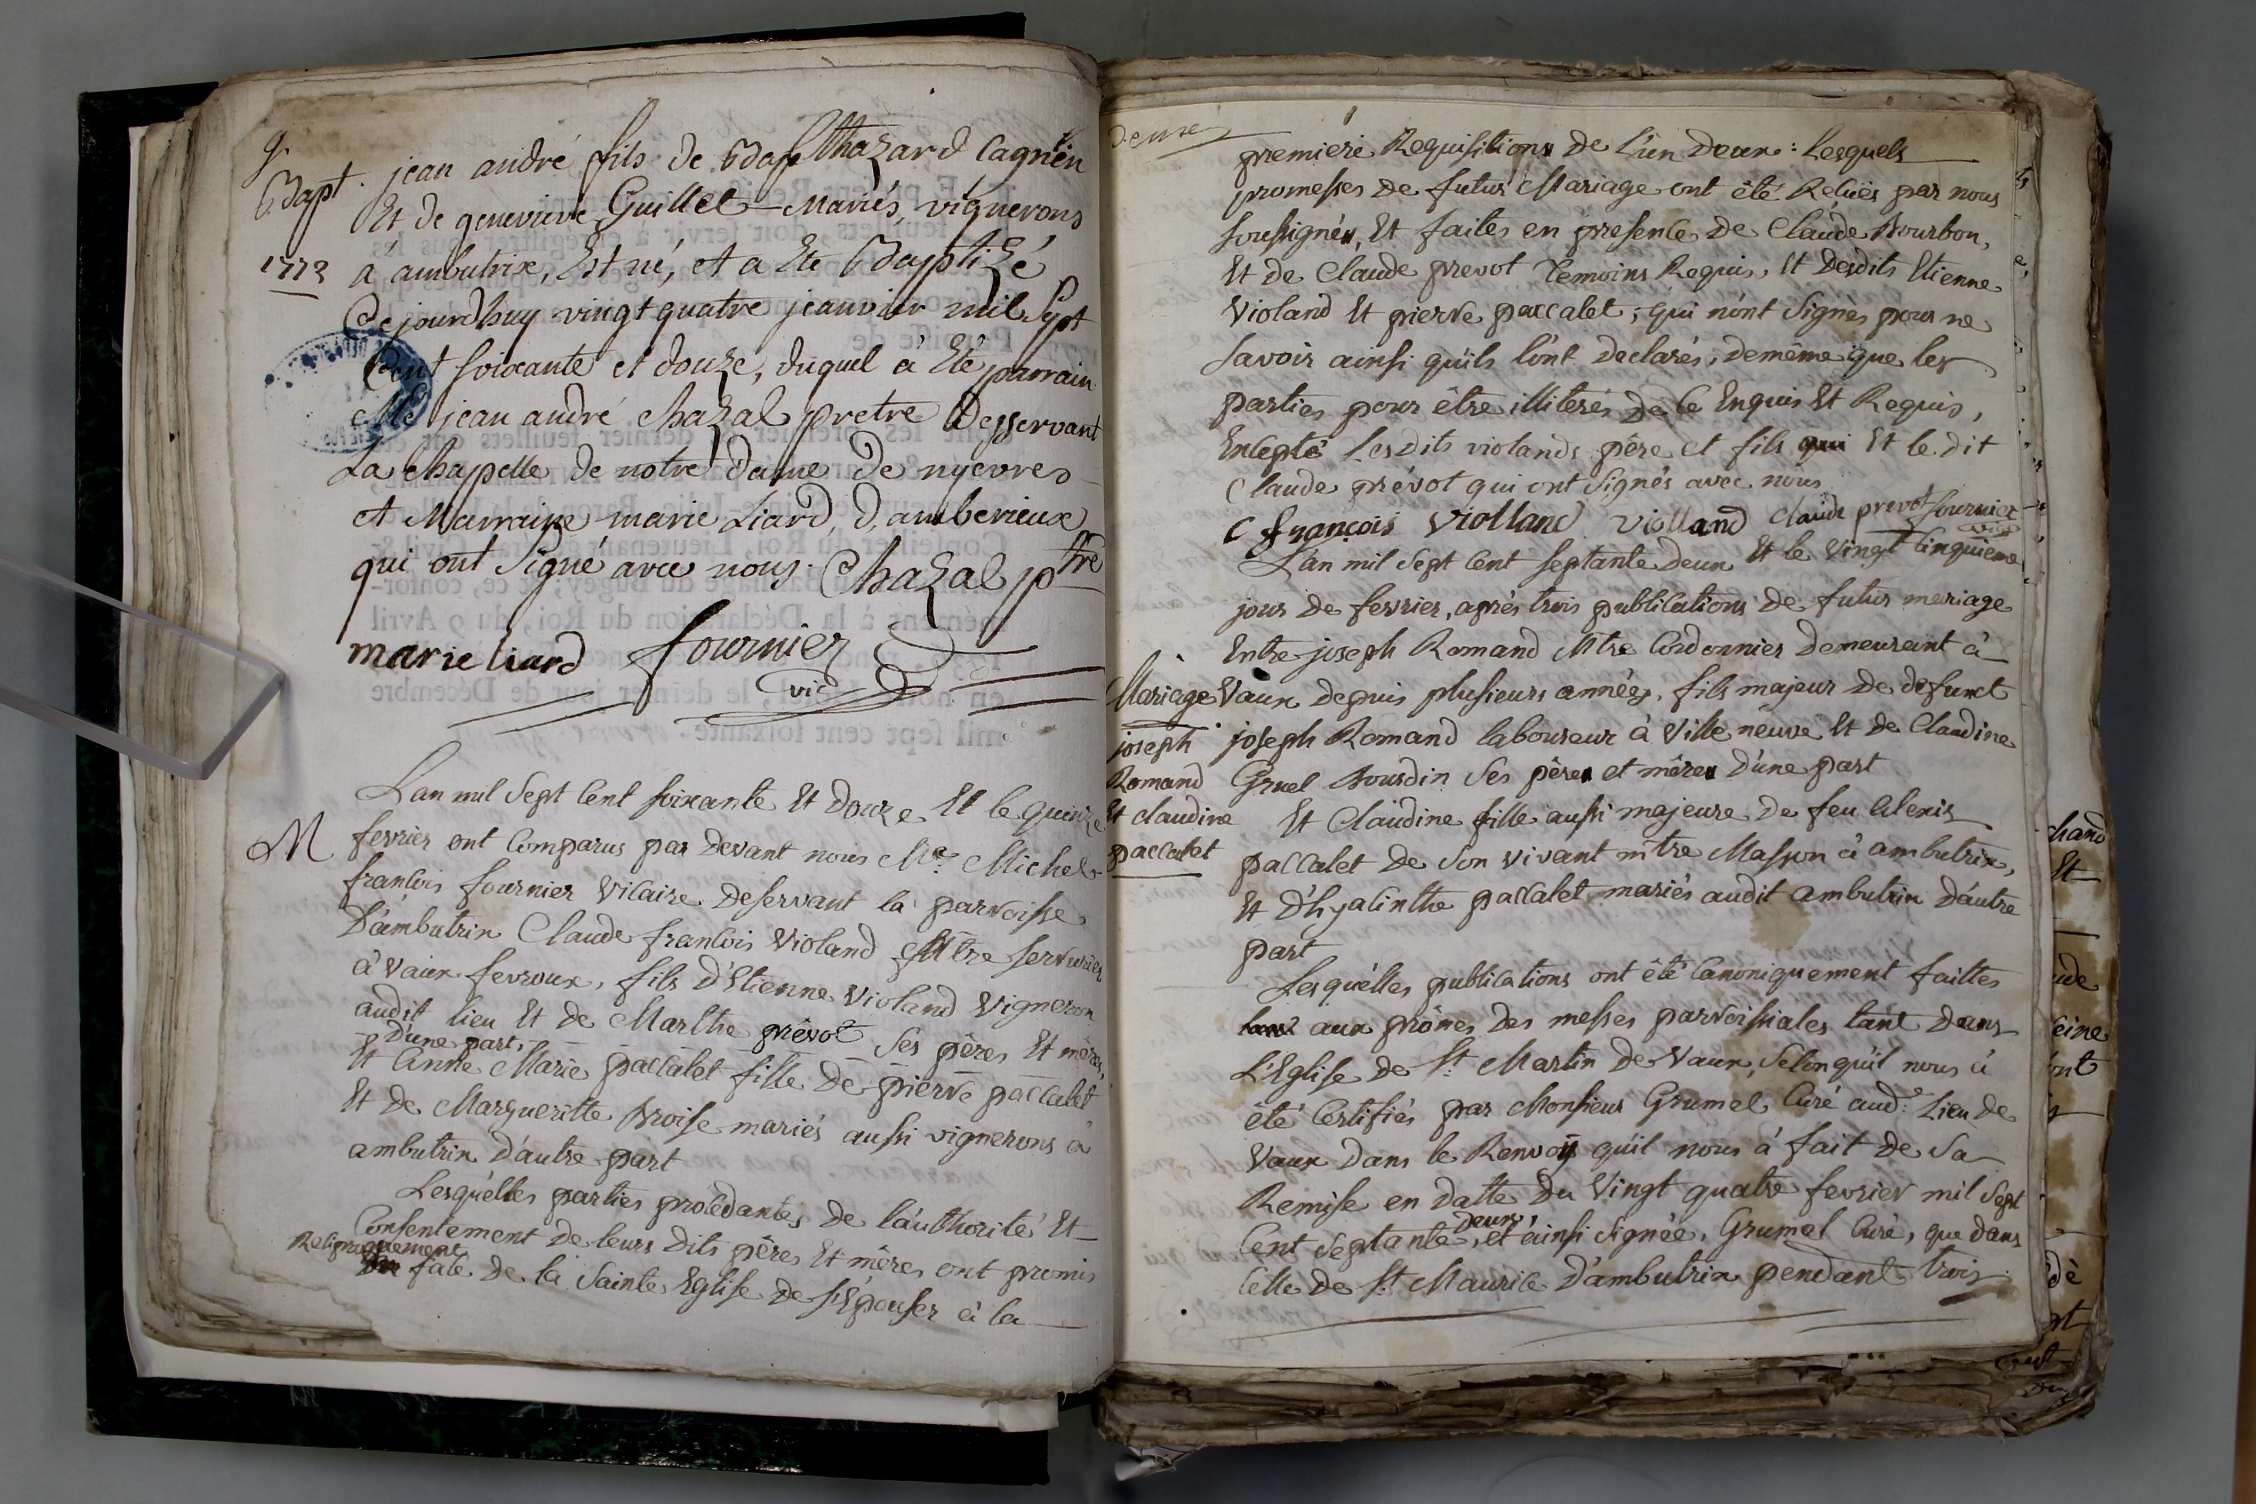 Bapt.
1772
jean andré fils de Balthazard Cagnin
Et de genevieve Guillet Mariés, vignerons
a ambutrix, Est né, et a Eté Baptizé
Cejourdhuy vingt quatre jeanvier mil Sept
Cent soixante et douze, duquel à Eté parrain
Mre jean andré Chazal pretre Desservant
La Chapelle de notre dame de nyevres
et Marraine marie Liard, d'amberieux
qui ont Signé avec nous. Chazal ptre
marie liard fournier
vic
M
L'an mil Sept Cent soixante Et Douze Et le quinze
fevrier ont Comparus par Devant nous Mre Michel
francois fournier Vicaire deservant la parroisse
D'ambutrix Claude francois Violand Mtre serrurier
à Vaux fevroux, fils d'Etienne Violand Vigneron
audit lieu Et de Marthe prévot Ses pères Et mères,
D'une part,
Et Anne Marie paccalet fille De pierre paccalet
Et de Margueritte Broise mariés aussi vignerons à
ambutrix D'autre part
Lesquelles parties procédantes de l'authorité Et
Consentement de leurs dits pères Et mères ont promis
Reliprouquement
face de la Sainte Eglise de s'Epouser à la
Deux
premiere Requisitions De L'un Deux : Lesquels
promesses de futur Mariage ont été Reçuës par nous
soussignés, Et faites en présence de Claude Bourbon,
Et de Claude prevot Temoins Requis, Et Desdits Etienne
Violand Et pierre paccalet ; qui n'ont Signés pour ne
savoir ainsi qu'ils l'ont Declarés, demême que les
parties pour être illiterés de ce Enquis Et Requis,
Excepté Lesdits violands père et fils qui Et le dit
Claude prévot qui ont Signés avec nous
C françois violland violland Claude prevot fournier
vic
L'an mil Sept Cent septante deux Et le Vingt Cinquieme
jour de fevrier, après trois publications de futur mariage
Entre joseph Romand Mtre Cordonnier Demeurant à
Mariage
joseph
Romand
Et claudine
paccalet
Vaux Depuis plusieurs années, fils majeur De defunct
joseph Romand laboureur à Ville neuve Et de Claudine
Gruel Bourdin Ses pères et mères D'une part
Et Claudine fille aussi majeure De feu Alexis
paccalet de Son vivant mtre Masson à ambutrix,
Et D'hyacinthe paccalet mariés audit ambutrix D'autre
part
Lesquelles publications ont été Canoniquement faittes
aux prônes Des messes parroissiales tant Dans
L'Eglise de St. Martin De Vaux, Selon qu'il nous à
été Certifiés par Monsieur Grumel Curé aud. Lieu De
Vaux Dans le Renvoÿ qu'il nous à fait de Sa
Remise en datte Du Vingt quatre fevrier mil Sept
Cent Septante deux, et ainsi Signée, Grumel Curé, que dans
Celle de St. Maurice D'ambutrix pendant trois